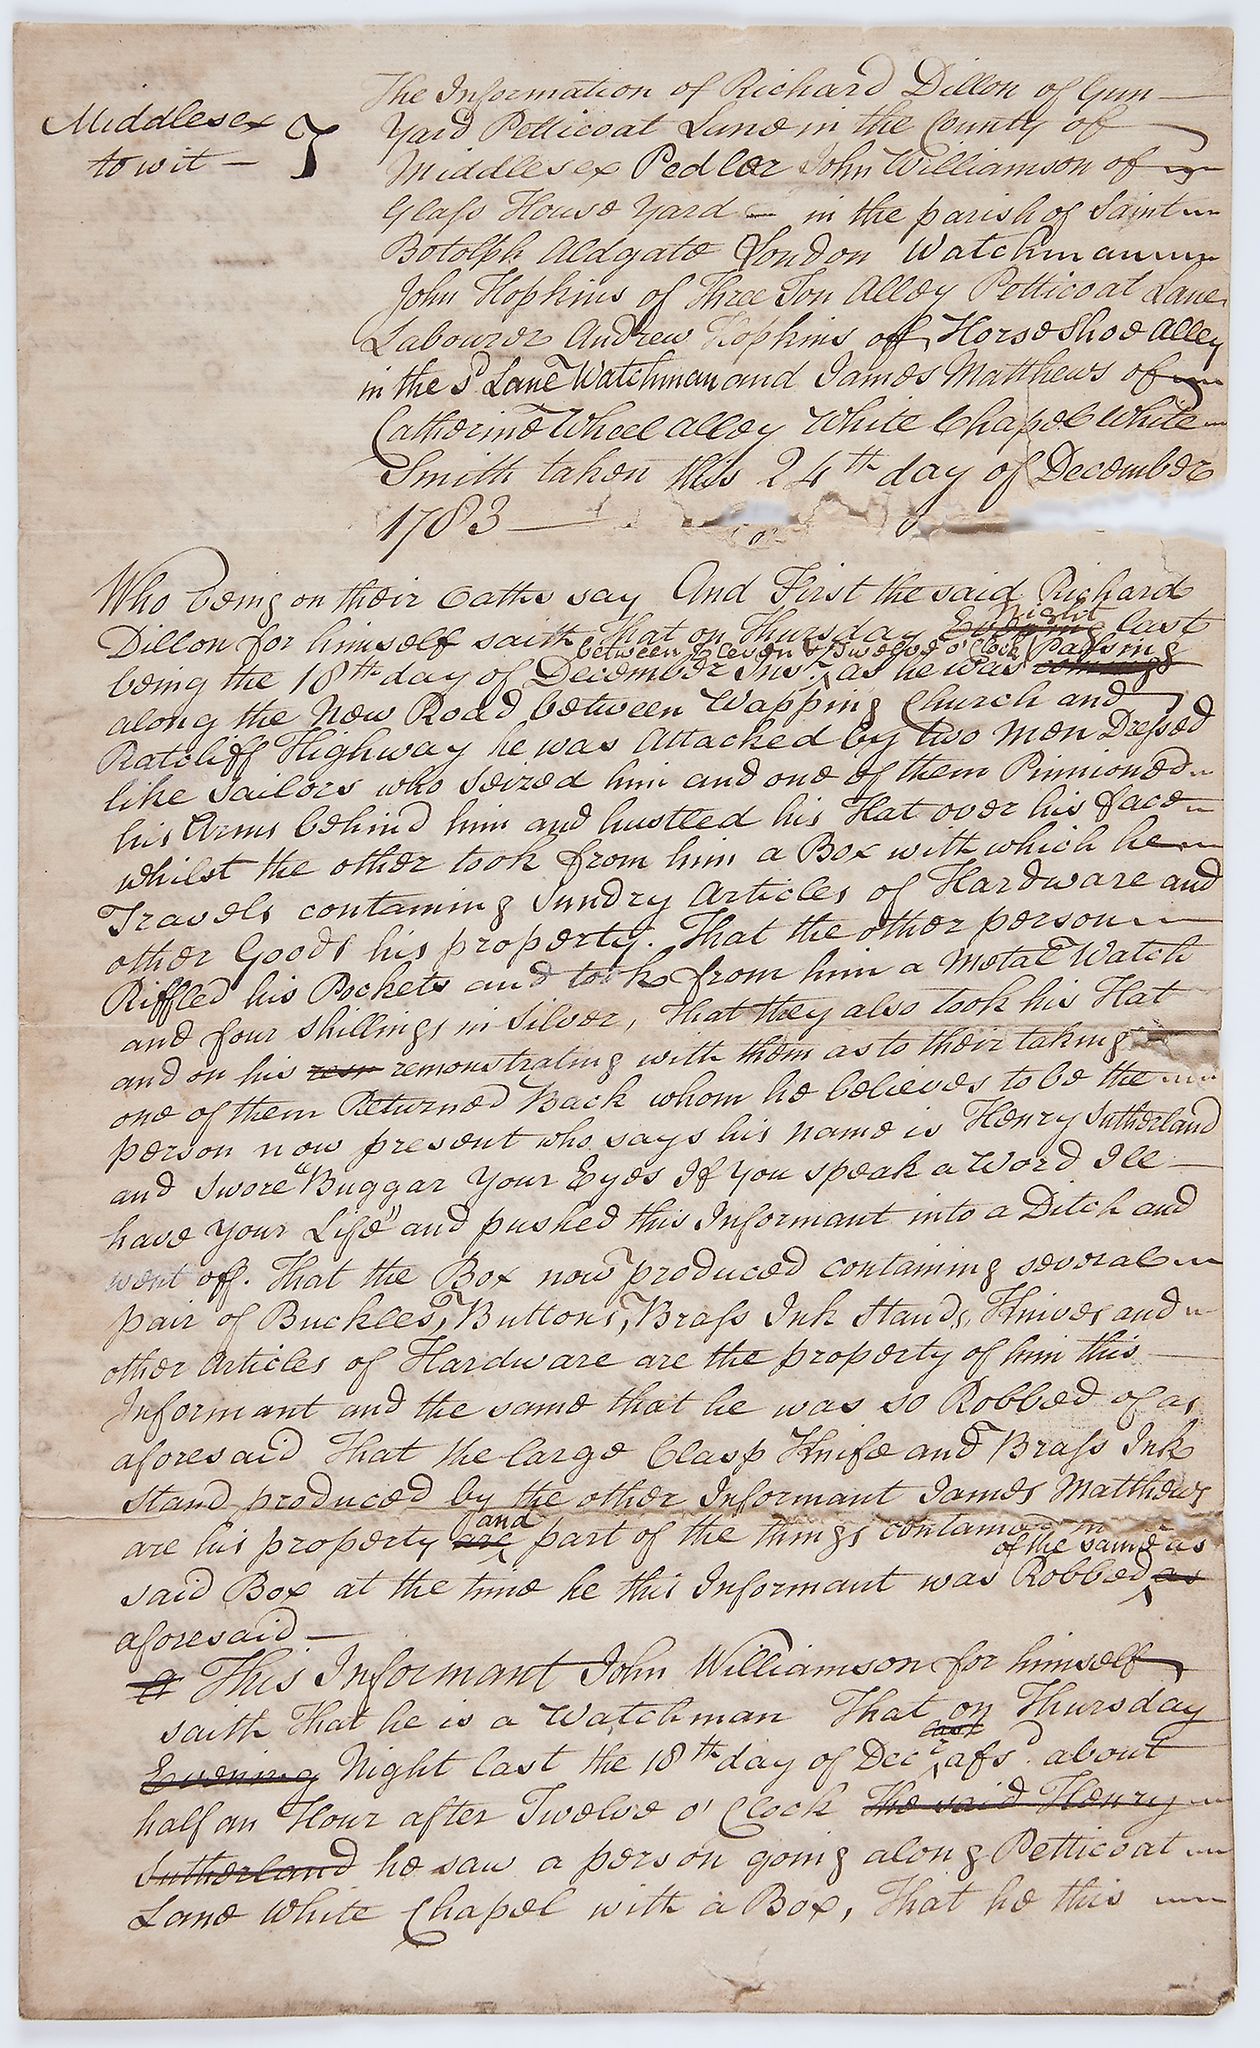 Middlesex
to wit —
The Information of Richard Dillon of Gun —
Yard Petticoat Lane in the County of
Middlesex Pedler John Williamson of
Glass House Yard — in the parish of Saint
Botolph Aldgate London Watchman
John Hopkins of Three Ton Alley Petticoat Lane
Labourer Andrew Hopkins of Horse Shoe Alley
in the sd Lane Watchman and James Matthews of
Catherine Wheel alley White Chapel White
Smith taken this 24th day of December
1783 —
Who being on their Oaths say And First the said Richard
night
Dillon for himself saith That on Thursday Evening last
between Eleven & Twelve o'Clock passing
being the 18th day of December Inst. as he was coming
along the New Road between Wapping Church and
Ratcliff Highway he was Attacked by two Men Dressed
like Sailors who Seized him and one of them Pinnioned
his Arms behind him and hustled his Hat over his face
whilst the other took from him a Box with which he
Travels containing Sundry Articles of Hardware and
other Goods his property. That the other person
Riffled his Pockets and took from him a Metal Watch
and four Shillings in Silver, That they also took his Hat
and on his remonstrating with them as to their taking
one of them Returned Back whom he believes to be the
person now present who says his name is Henry Sutherland
and Swore "Buggar Your Eyes If You speak a Word Ill
have Your Life" and pushed this Informant into a Ditch and
went off. That the Box now produced containing several
pair of Buckles, Buttons, Brass Ink Stands, Knives and
other Articles of Hardware are the property of him this —
Informant and the same that he was so Robbed of as
aforesaid That the large Clasp Knife and Brass Ink
Stand produced by the other Informant James Matthews
and
are his property are part of the things contained in
of the same as
said Box at the time he this Informant was Robbed as
aforesaid —
This Informant John Williamson for himself
saith That he is a Watchman That on Thursday
last
Evening Night last the 18th day of Decr afsd. about
half an Hour after Twelve o' Clock The said Henry
Sutherland he saw a person going along Petticoat
Lane White Chapel with a Box, That he this